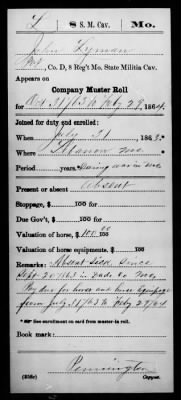 L S S. M. Cav. Mo.
John Lyman
Pvt, Co. D, 8 Reg't Mo. State Militia Cav.
Appears on
Company Muster Roll
for Oct 31/63 to Feby 29, 1864.
Joined for duty and enrolled:
When July 31, 1863.
Where Mo
Period years. During war in Mo
Present or absent Absent
Stoppage, $ 100 for
Due Gov't, $ 100 for
Valuation of horse, $ 100 00/100
Valuation of horse equipments. $ 100
Remarks: Absent Sick Since
Sept 20/63 in Dade Co Mo,
Pay due for horse and horse Equipage
from July 31/63 to Feby 29/64
* See enrollment on card from muster-in roll.
Book mark:
Pennington
(858c) Copyist.